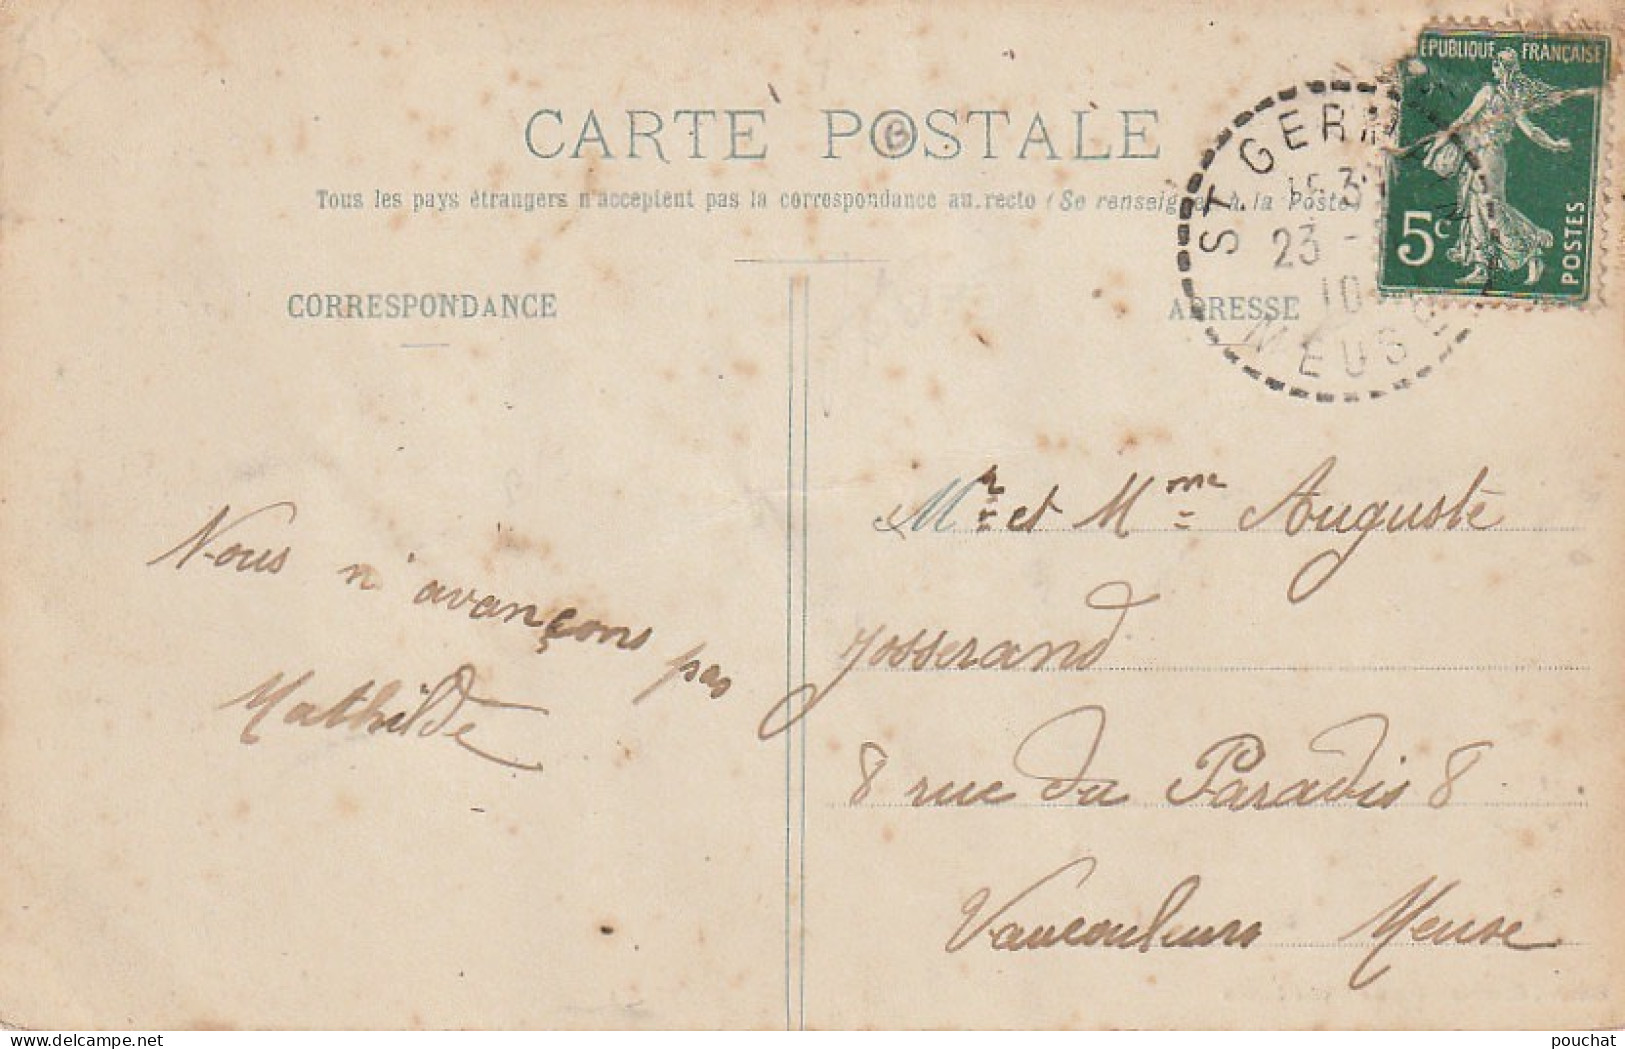 CARTE POSTALE
Tous les pays étrangers n'acceptent pas la correspondance au recto (Se renseigner à la Poste)
CORRESPONDANCE
ADRESSE
ST GERM
15 3
23 -
10
MEUS
EPUBLIQUE FRANÇAISE
5c
POSTES
Nous n'avançons pas
Mathilde
Mr et Mme Auguste
Josserand
8 rue du Paradis 8
Vaucouleurs Meuse
delcampe.net
pouchat